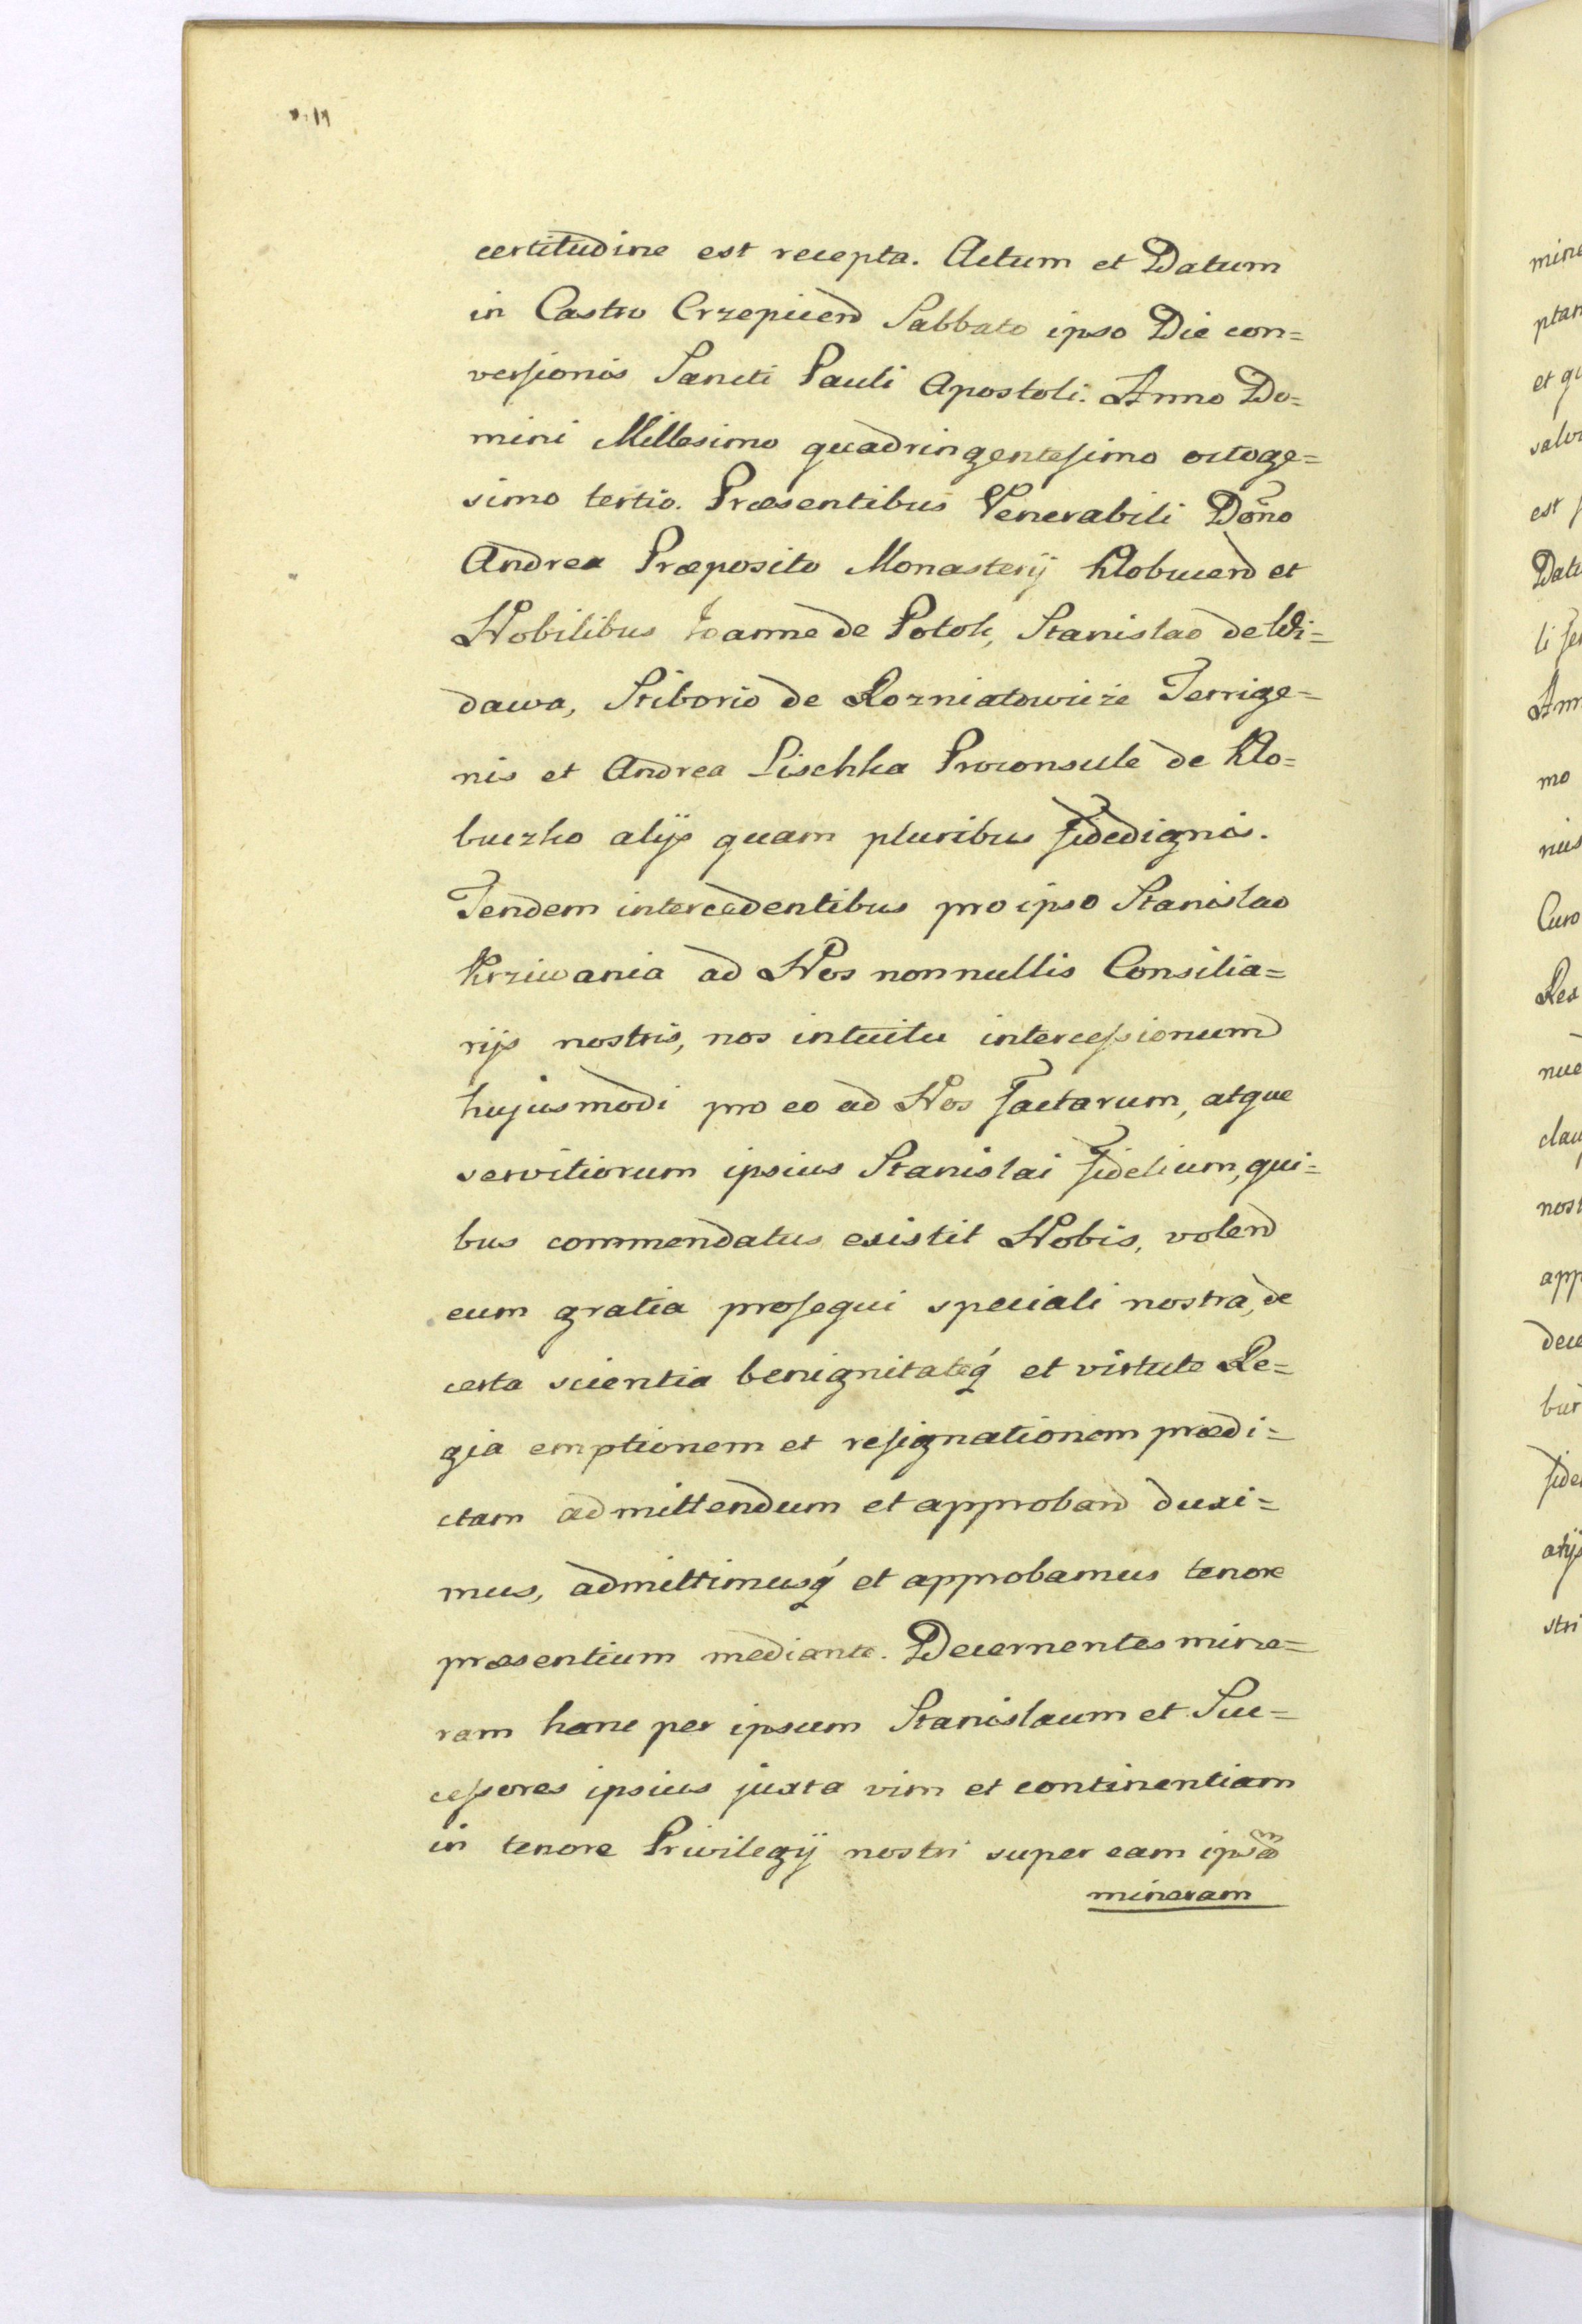 certitudine est recepta. Actum et Datum
in Castro Crzepicen Sabbato ipso Die con=
versionis Sancti Pauli Apostoli. Anno Do=
mini Millesimo quadringentesimo octoge=
simo tertio. Præsentibus Venerabili Dōno
Andrea Præposito Monasterÿ Klobucen et
Nobilibus Joanne de Potok, Stanislao de Wi=
dawa, Stiborio de Rozniatowicze Terrige=
nis et Andrea Lischka Proconsule de Klo=
buczko alÿs quam pluribus fidedignis.
Tendem intercedentibus pro ipso Stanislao
Krziwania ad Nos nonnullis Consilia=
rÿs nostris, nos intuitu intercessionum
hujusmodi pro eo ad Nos factarum, atque
servitiorum ipsius Stanislai fidelium, qui=
bus commendatus existit Nobis, volen
eum gratia prosequi speciali nostra, de
certa scientia benignitateq́ et virtute Re=
gia emptionem et resignationem prædi=
ctam admittendum et approban duxi=
mus, admittimusq́ et approbamus tenore
præsentium mediante. Decernentes mine=
ram hanc per ipsum Stanislaum et Suc=
cessores ipsius juxta vim et continentiam
in tenore Privilegÿ nostri super eam ipsam
mineram
mine
ptam
et qu
salv
est
Datu
li
Ann
mo
nus
Curo
Rex
nue
clau
nost
app
dece
bur
fide
alÿs
stri